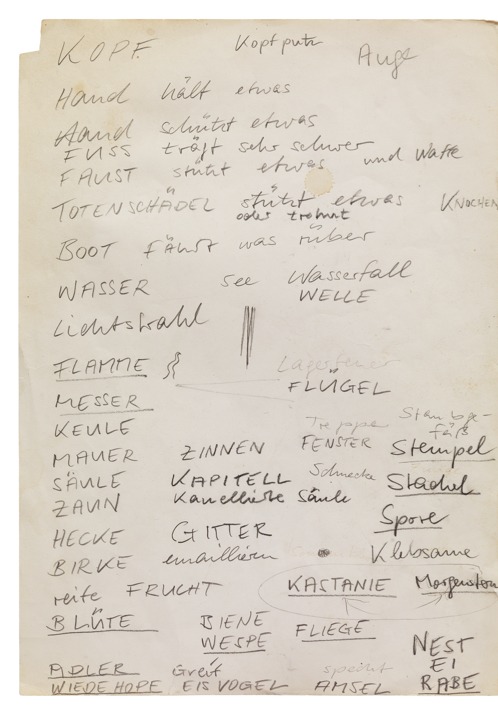 KOPF. Kopfputz Auge
Hand hält etwas
Hand schützt etwas
FUSS trägt sehr schwer
FAUST stützt etwas und Waffe
TOTENSCHÄDEL stützt etwas KNOCHEN
oder trohnt
BOOT FÄHRT was rüber
WASSER See Wasserfall
WELLE
Lichtstrahl
FLAMME Lagerfeuer
FLÜGEL
MESSER
KEULE Treppe Staubge-
fäß
MAUER ZINNEN FENSTER Stempel
SÄULE KAPITELL Schnecke Stachel
ZAUN Kanellierte Säule
HECKE GITTER Spore
BIRKE emaillieren Klebsame
reife FRUCHT KASTANIE Morgenstern
BLÜTE BIENE FLIEGE
WESPE NEST
EI
ADLER Greif speiht
WIEDEHOPF EISVOGEL AMSEL RABE